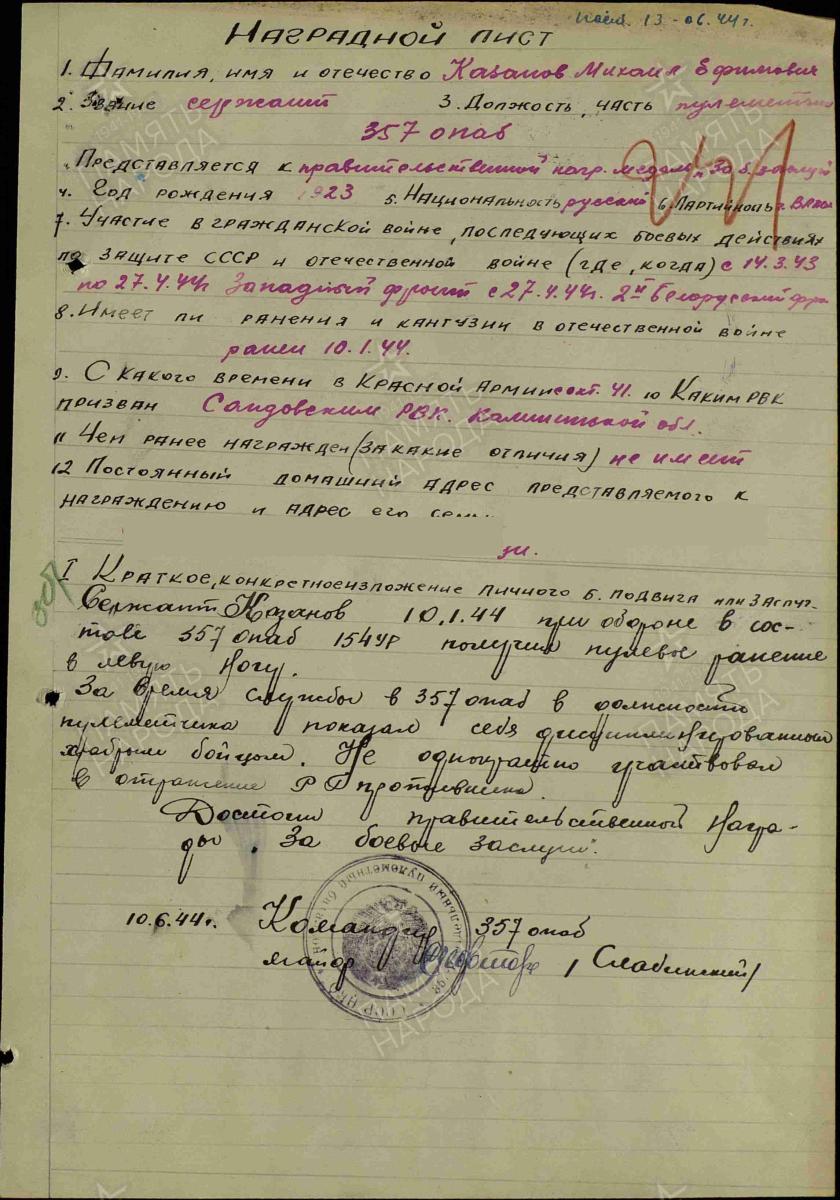 13-06.44г.
Наградной лист
1. Фамилия, имя и отечество Казанов Михаил Ефимович
2. Звание сержант 3. Должность, часть пулеметчик
357 опаб
Представляется к правительственной нагр. медаль „За б. заслуги
4. Год рождения 1923 5. Национальность русский 6. Партийность
7. Участие в гражданской войне, последующих боевых действиях
по защите СССР и отечественной войне (где, когда) с 14.3.43
по 27.4.44г Западный фронт с 27.4.44г. 2й Белорусский фро
8. Имеет ли ранения и кантузии в отечественной войне
ранен 10.1.44.
9. С какого времени в Красной Армии с окт. 41. 10 Каким РВК
призван Сандовским РВК. Калининской обл.
11 Чем ранее награжден (за какие отличия) не имеет
12 Постоянный домашний адрес представляемого к
награждению и адрес его
I Краткое, конкретное изложение личного б. подвига или заслуг.
Сержант Казанов 10.1.44 при обороне в сос-
таве 357 опаб 154 ур получил пулевое ранение
в левую ногу.
За время службы в 357 опаб в должности
пулеметчика показал себя дисциплинированным
храбрым бойцом. Не однократно участвовал
в отражение РГ противника.
Достоин правительственной Награ-
ды „За боевые заслуги".
10.6.44г. Командир 357 опаб
майор / Слабинский/
ПАМЯТЬ НАРОДА